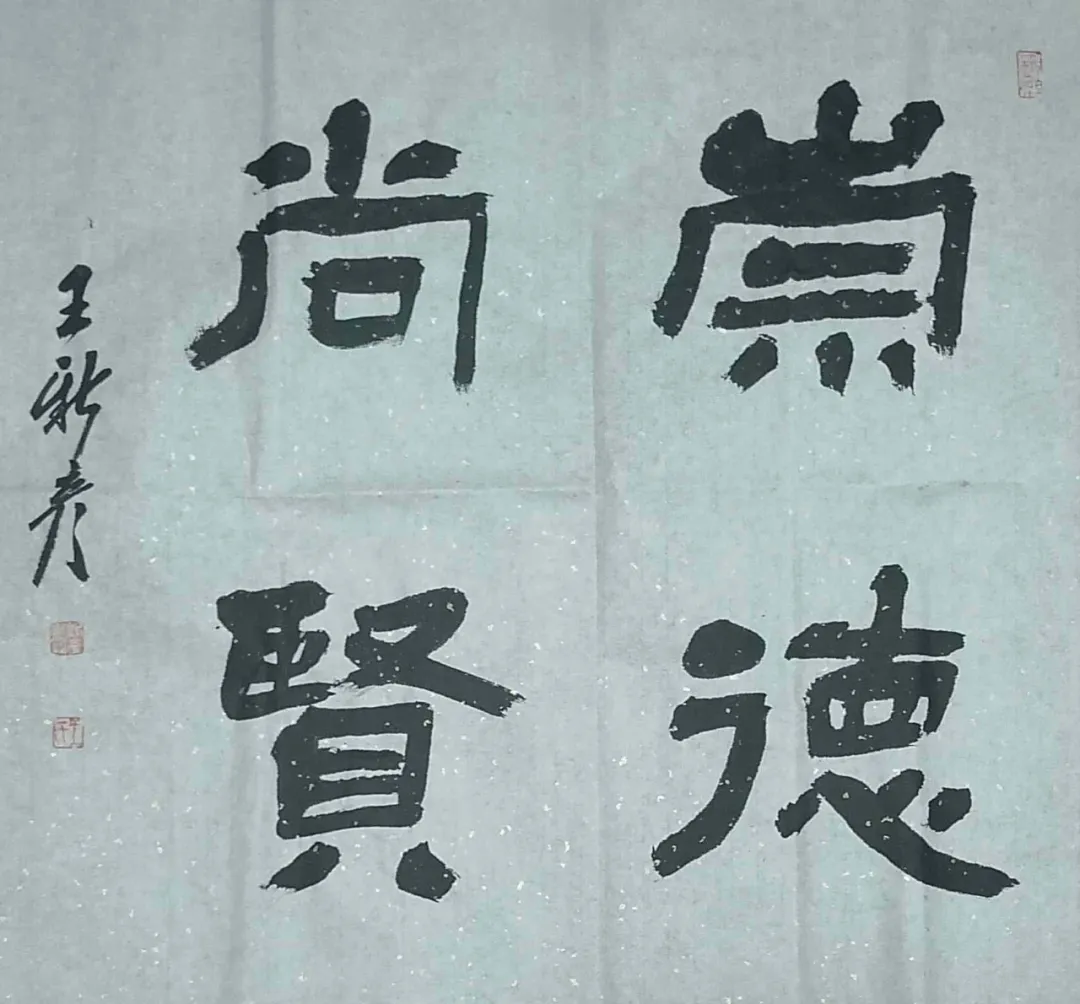 崇德
尚賢
王新彦